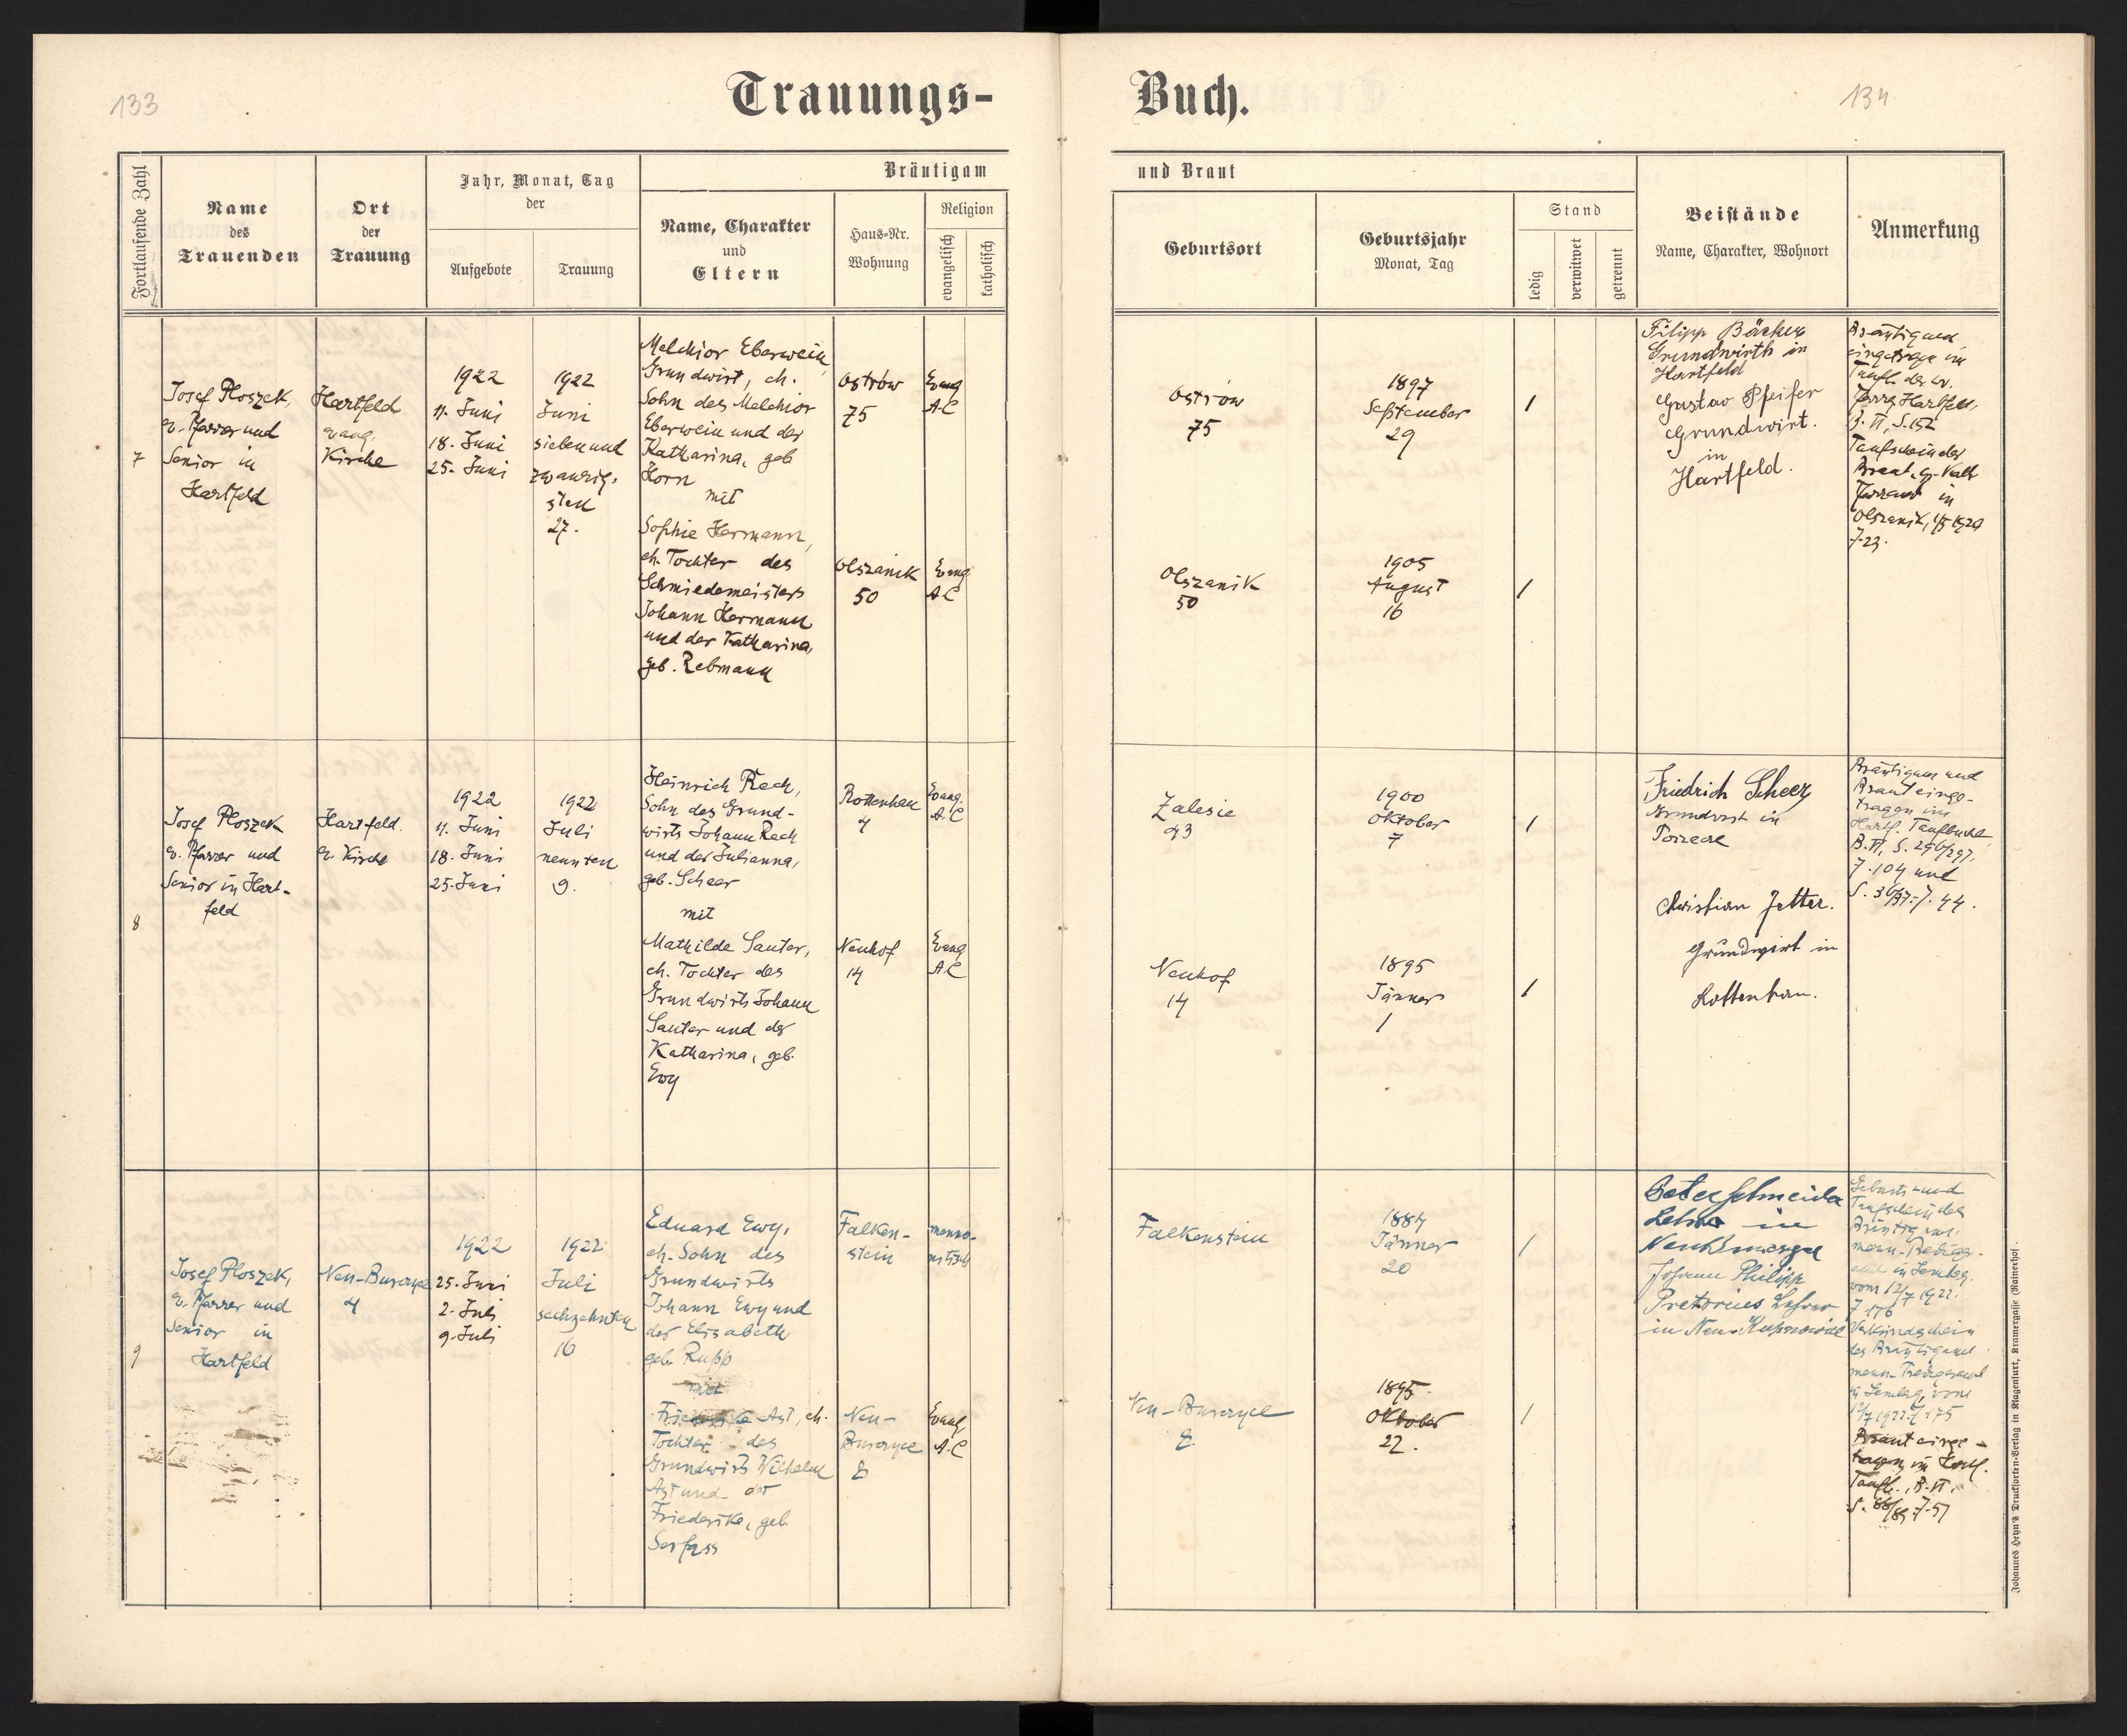 133
Trauungs-
Buch.
134
Fortlaufende Zahl
Name
des
Trauenden
Ort
der
Trauung
Jahr, Monat, Tag
der
Aufgebote
Trauung
Bräutigam
Name, Charakter
und
Eltern
Haus-Nr.
Wohnung
Religion
evangelisch
katholisch
und Braut
Geburtsort
Geburtsjahr
Monat, Tag
Stand
ledig
verwitwet
getrennt
Beistände
Name, Charakter, Wohnort
Anmerkung
7
Josef Ploszek,
ev. Pfarrer und
Senior in
Hartfeld
Hartfeld
evang.
Kirche
1922
11. Juni
18. Juni
25. Juni
1922
Juni
siebenund
zwanzig-
sten
27.
Melchior Eberwein
Grundwirt, eh.
Sohn des Melchior
Eberwein und der
Katharina, geb
Horn
mit
Sophie Hermann,
eh. Tochter des
Schmiedemeisters
Johann Hermann
und der Katharina,
geb. Rebmann
Ostrów
75
Evang
A.C
Olszanik
50
Evang
A.C
Ostrów
75
1897
September
29
1
Olszanik
50
1905
August
16
1
Filipp Bäcker
Grundwirth in
Hartfeld
Gustav Pfeifer
Grundwirt.
in
Hartfeld.
Bräutigam
eingetragen im
Taufb. der ev.
Pfarre Hartfeld,
B. VI, S. 152
Taufschein der
Braut
in
Olszanik,
8
Josef Ploszek
ev. Pfarrer und
Senior in Hart-
feld
Hartfeld.
ev. Kirche
1922
11. Juni
18. Juni
25. Juni
1922
Juli
neunten
9.
Heinrich Rech,
Sohn des Grund-
wirts Johann Rech
und der Julianna,
geb. Scheer
mit
Mathilde Sauter,
eh. Tochter des
Grundwirts Johann
Sauter und der
Katharina, geb.
Ewy
Rottenhan
4
Evang.
A.C
Neuhof
14
Evang
A.C
Zalesie
43
1900
Oktober
7
1
Neuhof
14
1895
Jänner
1
1
Friedrich Scheer
Grundwirt in
Christian Jetter.
Grundwirt in
Rottenhan.
Bräutigam und
Braut einge-
tragen im
Hartf. Taufbuche
B. VI, S. 296/297,
Z. 104 und
S. 36/37. Z. 44.
9
Josef Ploszek,
ev. Pfarrer und
Senior in
Hartfeld
Neu-Burczyce
4
1922
25. Juni
2. Juli
9. Juli
1922
Juli
sechzehnten
16
Eduard Ewy,
eh. Sohn des
Grundwirts
Johann Ewy und
der Elisabeth
geb. Rupp
mit
Friederike Ast, eh.
Tochter des
Grundwirts Wilhelm
Ast und der
Friederike, geb.
Serfass
Falken-
stein
menno-
nitisch
Neu-
Burczyce
8
Evang
A.C
Falkenstein
1884
Jänner
20
1
Neu-Burczyce
8
1895
Oktober
22.
1
Peter Schneider
Lehrer in
Johann Philipp
Pretorius Lehrer
in Neu-Kupnowice
Geburts- und
Taufschein des
Bräutigams.
menn. Prediger-
amt in Lemberg.
vom 12/7 1922.
Z 176
Verkündschein
des Bräutigams
menn. Predigeramt
in Lemberg, vom
12/7 1922 Z 175
Braut einge-
tragen im Hartf.
Taufb., B. VI.
S. 88/89. Z. 57
Johannes Heyn's Drucksorten-Verlag in Klagenfurt, Kramergasse (Rainerhof).